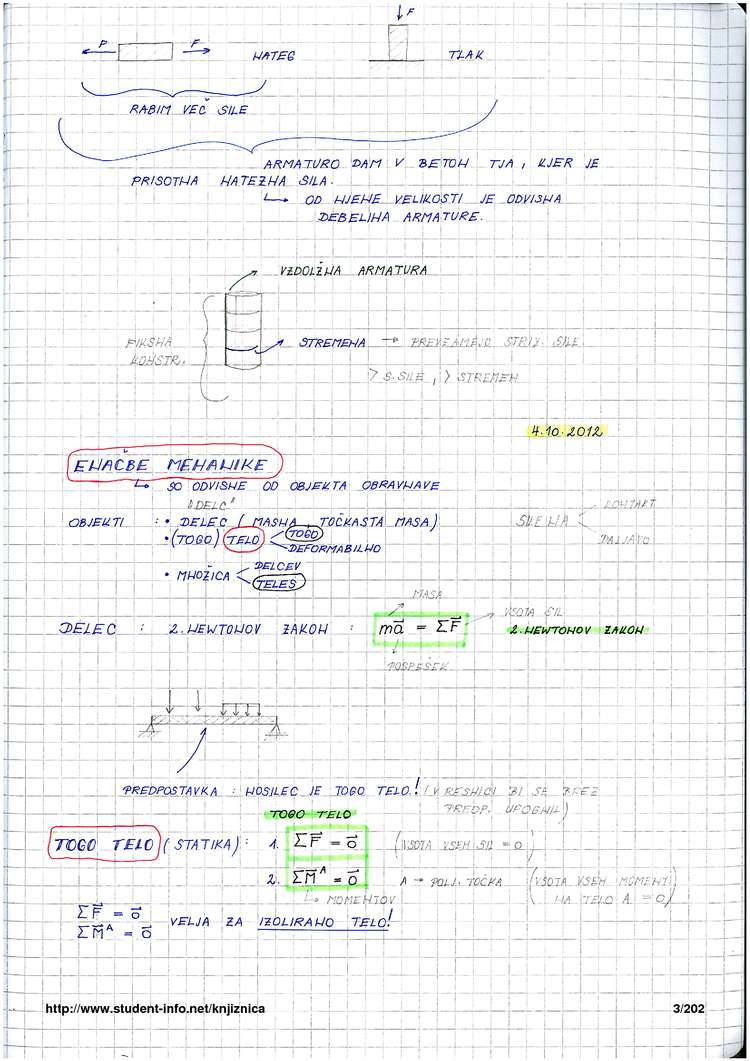 F
P F NATEG TLAK
RABIM VEČ SILE
ARMATURO DAM V BETON TJA, KJER JE
PRISOTNA NATEZNA SILA.
↳ OD NJENE VELIKOSTI JE ODVISNA
DEBELINA ARMATURE.
VZDOLŽNA ARMATURA
FIKSNA
KONSTR.
STREMENA → PREVZAMEJO STRIŽ. SILE.
> S. SILE, > STREMEN
4.10.2012
ENAČBE MEHANIKE
↳ SO ODVISNE OD OBJEKTA OBRAVNAVE
"DELC"
OBJEKTI : • DELEC (MASNA, TOČKASTA MASA)
• (TOGO) TELO TOGO
DEFORMABILNO
• MNOŽICA DELCEV
TELES
SILE NA KONTAKT
DALJAVO
MASA
VSOTA SIL
DELEC : 2. NEWTONOV ZAKON : ma⃗ = ΣF⃗ 2. NEWTONOV ZAKON
POSPEŠEK
PREDPOSTAVKA : NOSILEC JE TOGO TELO! (V RESNICI BI SE BREZ
PREDP. UPOGNIL)
TOGO TELO
TOGO TELO (STATIKA) : 1. ΣF⃗ = 0⃗ (VSOTA VSEH SIL = 0)
2. ΣM⃗ᴬ = 0⃗ A → POLJ. TOČKA (VSOTA VSEH MOMENT.
NA TELO A = 0)
↳ MOMENTOV
ΣF⃗ = 0⃗
ΣM⃗ᴬ = 0⃗ VELJA ZA IZOLIRANO TELO!
http://www.student-info.net/knjiznica 3/202